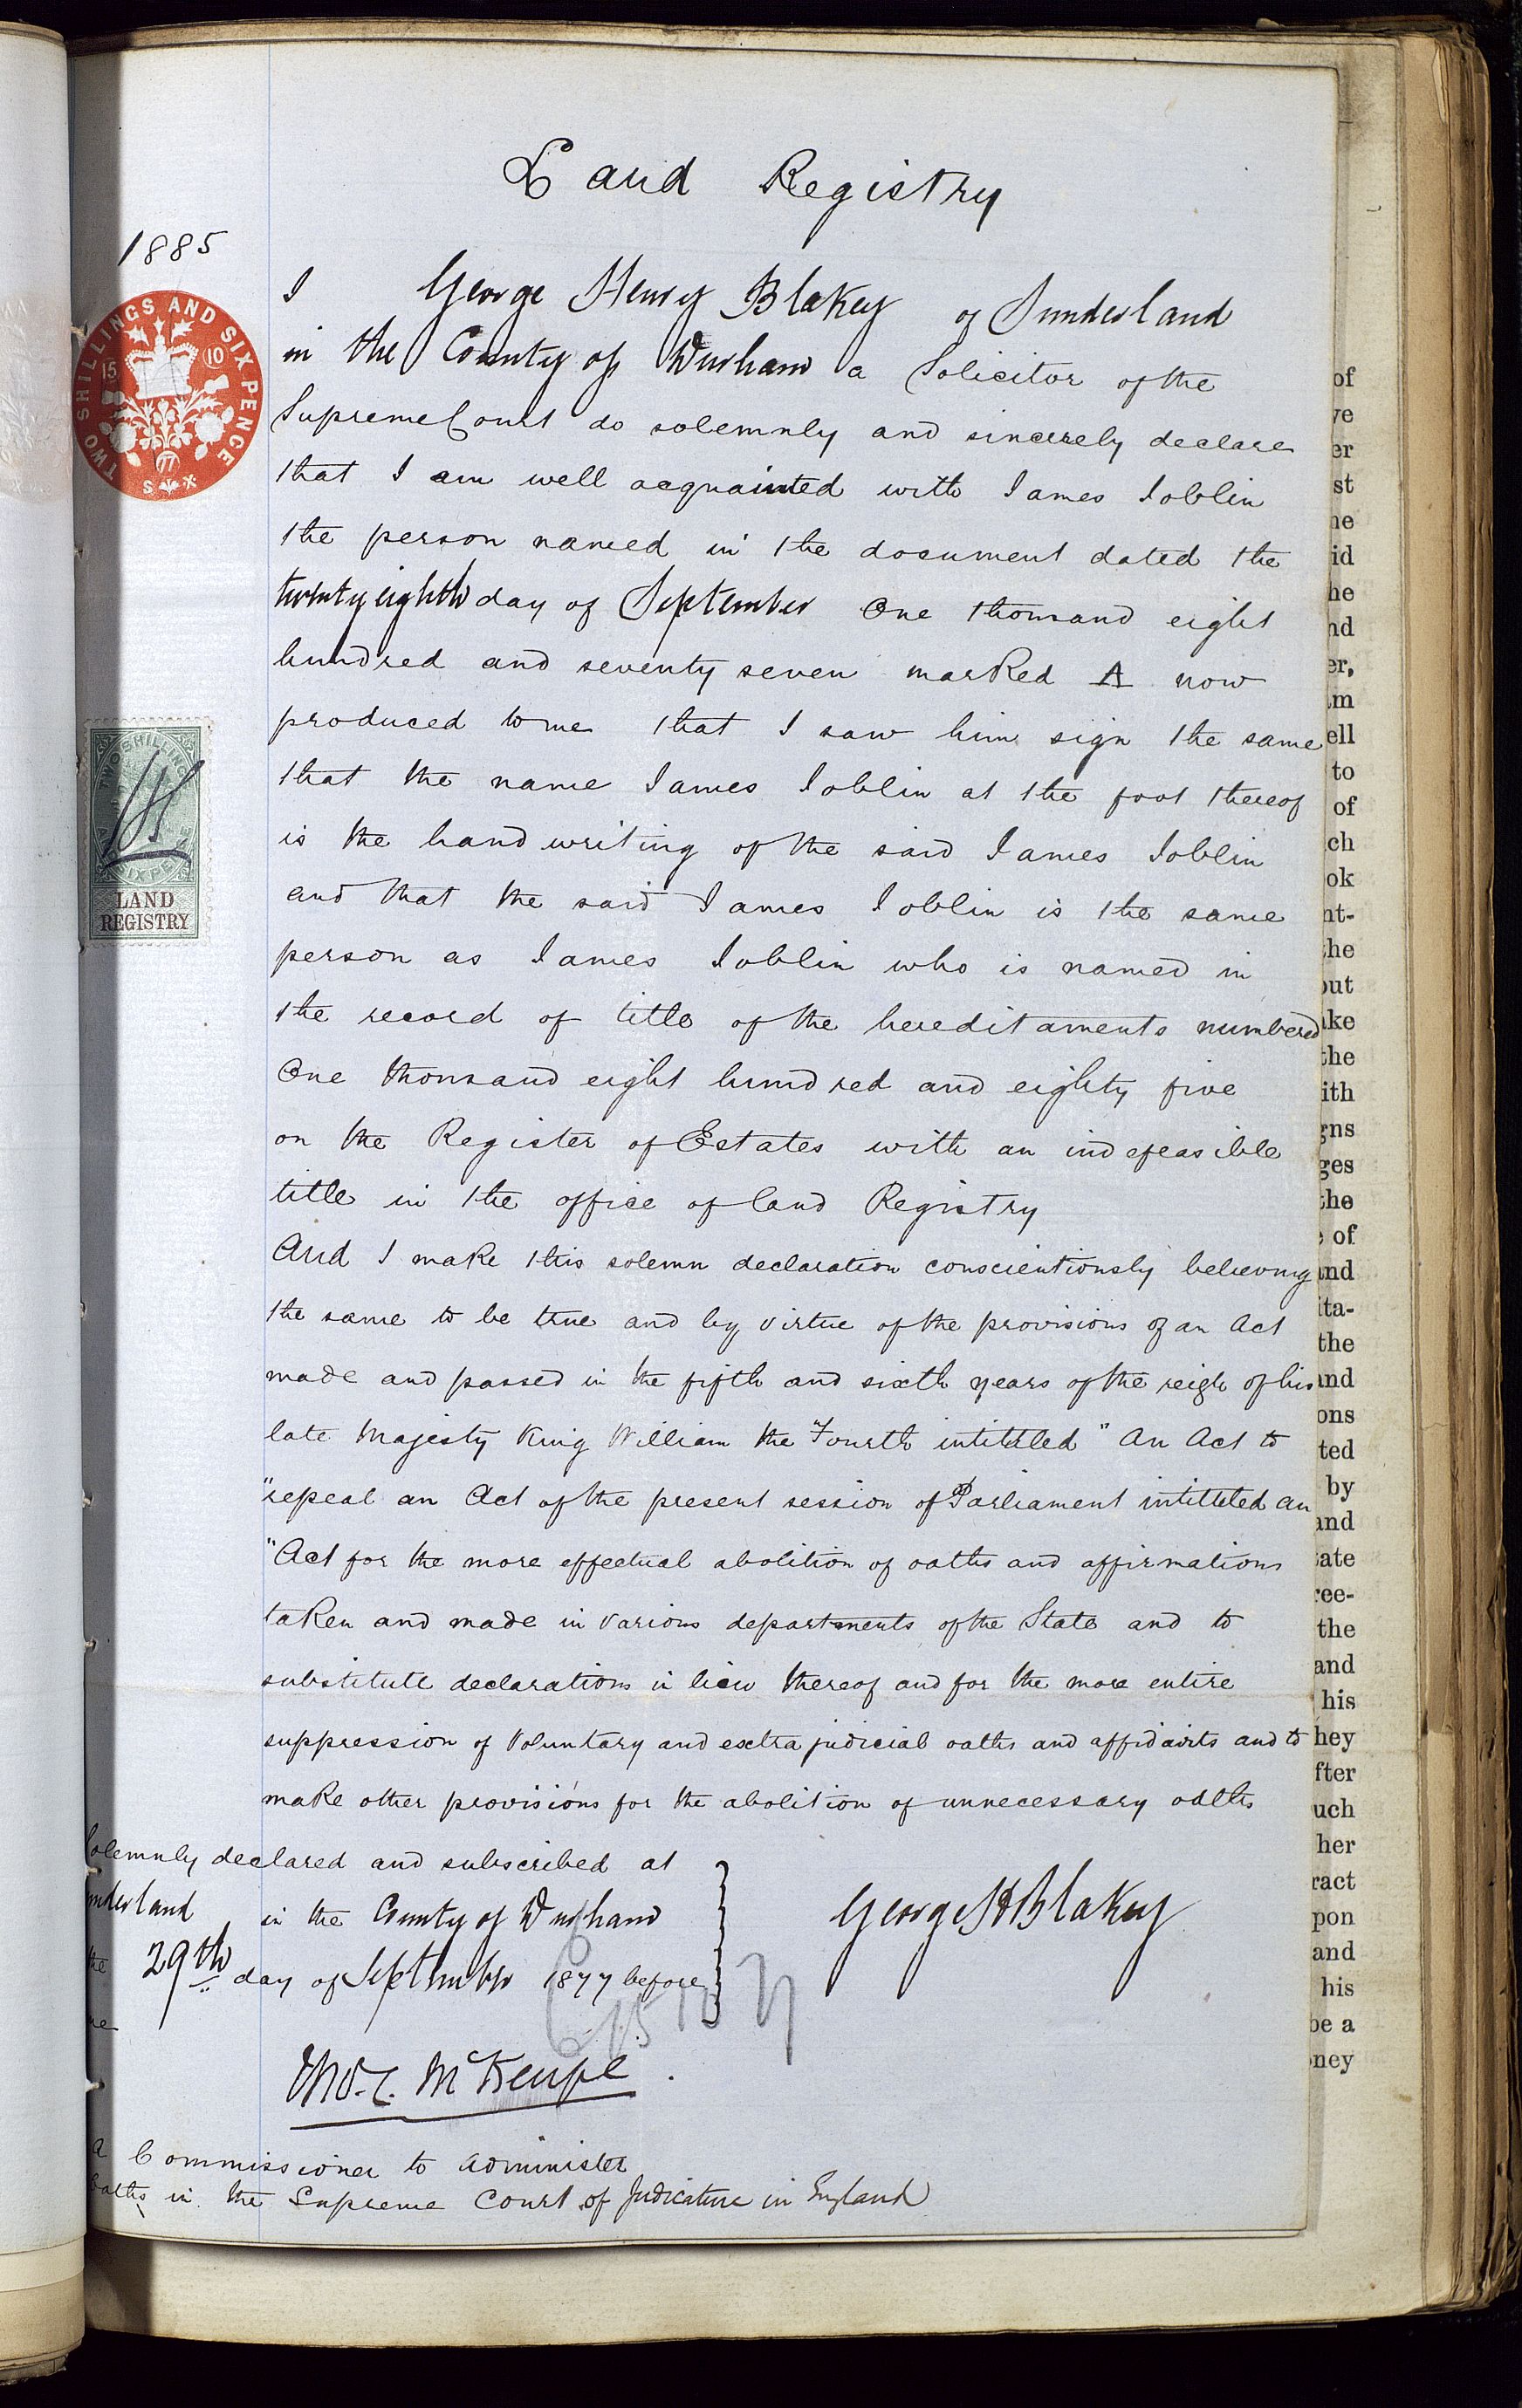 Land Registry
1885
TWO SHILLINGS AND SIX PENCE
15
10
77
I George Henry Blakey of Sunderland
in the County of Durham a Solicitor of the
Supreme Court do solemnly and sincerely declare
that I am well acquainted with James Joblin
the person named in the document dated the
twenty eighth day of September One thousand eight
hundred and seventy seven marked A now
produced to me that I saw him sign the same
that the name James Joblin at the foot thereof
is the hand writing of the said James Joblin
and that the said James Joblin is the same
person as James Joblin who is named in
the record of title of the hereditaments numbered
One thousand eight hundred and eighty five
on the Register of Estates with an indefeasible
title in the office of land Registry
And I make this solemn declaration conscientiously believing
the same to be true and by virtue of the provisions of an Act
made and passed in the fifth and sixth years of the reign of his
late Majesty King William the Fourth intitled "An Act to
"repeal an Act of the present session of Parliament intitled an
"Act for the more effectual abolition of oaths and affirmations
taken and made in various departments of the State and to
substitute declarations in lieu thereof and for the more entire
suppression of voluntary and extra judicial oaths and affidavits and to
make other provisions for the abolition of unnecessary oaths
TWO SHILLINGS
SIX PENCE
LAND
REGISTRY
Solemnly declared and subscribed at
Sunderland in the County of Durham
the 29th day of September 1877 before
me
George H Blakey
a Commissioner to administer
oaths in the Supreme Court of Judicature in England
of
er
st
id
nd
er,
ell
to
of
ch
ok
nt-
the
out
ake
the
ith
gns
ges
the
of
and
ita-
the
and
ons
ted
by
and
tate
ree-
the
and
his
hey
fter
uch
her
ract
pon
and
his
be a
ney